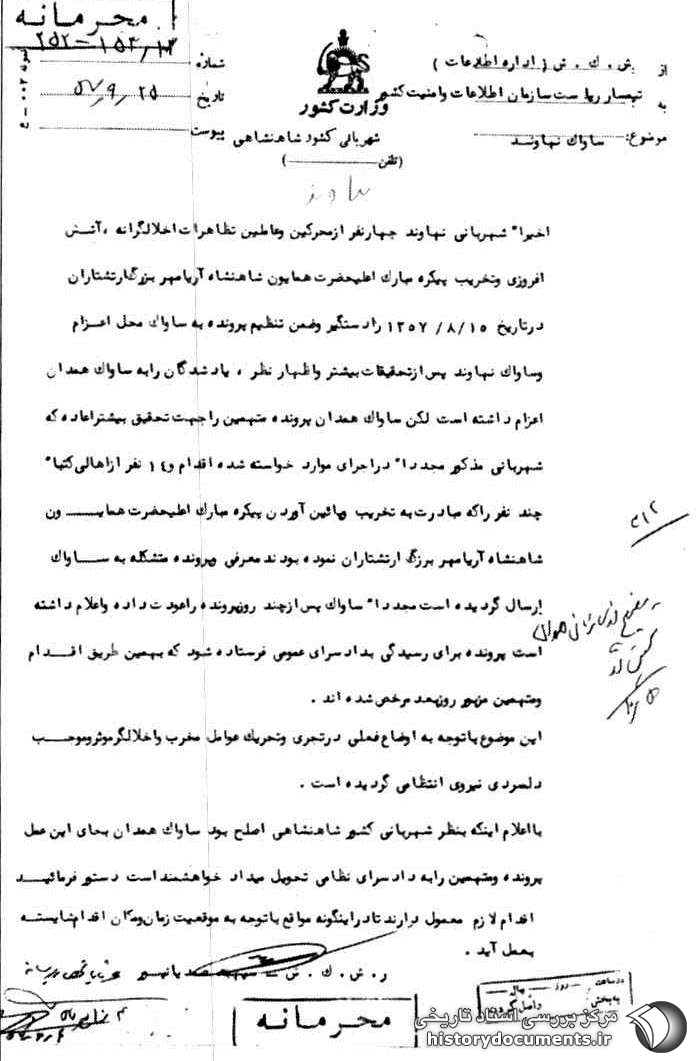 محرمانه
۲۵۲-۱۵۳/۱۳
از ش . ك . ش ( اداره اطلاعات )
به تیمسار ریاست سازمان اطلاعات وامنیت کشور
موضوع: ساواك نهاوند
وزارت کشور
شهربانی کشور شاهنشاهی
(تلفن)
شماره
تاریخ ۵۷/۹/۲۵
پیوست
اخیرا" شهربانی نهاوند چهارنفر ازمحرکین وعاملین تظاهرات اخلالگرانه ، آتش
افروزی وتخریب پیکره مبارك اعلیحضرت همایون شاهنشاه آریامهر بزرگ ارتشتاران
درتاریخ ۱۳۵۷/۸/۱۵ رادستگیر وضمن تنظیم پرونده به ساواك محل اعزام
وساواك نهاوند پس ازتحقیقات بیشتر واظهار نظر ، یادشدگان رابه ساواك همدان
اعزام داشته است لکن ساواك همدان پرونده متهمین راجهت تحقیق بیشتراعاده که
شهربانی مذکور مجددا" دراجرای موارد خواسته شده اقدام و۱٤ نفر ازاهالی کتبا"
چند نفر راکه مبادرت به تخریب وپائین آوردن پیکره مبارك اعلیحضرت همایــون
شاهنشاه آریامهر بزرگ ارتشتاران نموده بودند معرفی وپرونده متشکله به ســاواك
ارسال گردیده است مجددا" ساواك پس ازچند روزپرونده راعودت داده واعلام داشته
است پرونده برای رسیدگی بدادسرای عمومی فرستاده شود که بهمین طریق اقــدام
ومتهمین مزبور روزبعد مرخص شده اند .
این موضوع باتوجه به اوضاع فعلی درتجری وتحریك عوامل مخرب واخلالگر موثروموجــب
دلسردی نیروی انتظامی گردیده است .
بااعلام اینکه بنظر شهربانی کشور شاهنشاهی اصلح بود ساواك همدان بجای این عمل
پرونده ومتهمین رابه دادسرای نظامی تحویل میداد خواهشمند است دستور فرمائیــد
اقدام لازم معمول دارند تادراینگونه مواقع باتوجه به موقعیت زمان ومکان اقدام شایسته
بعمل آید .
ر . ش . ك . ش
۳۱۲
محرمانه
مرکز بررسی اسناد تاریخی
historydocuments.ir